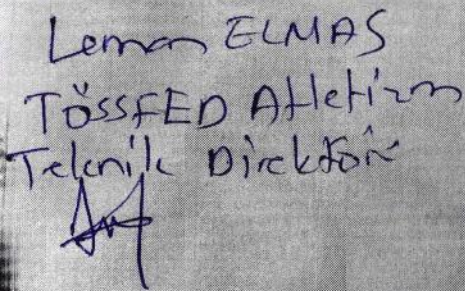 Leman ELMAS
TÖSSFED Atletizm
Teknik Direktör